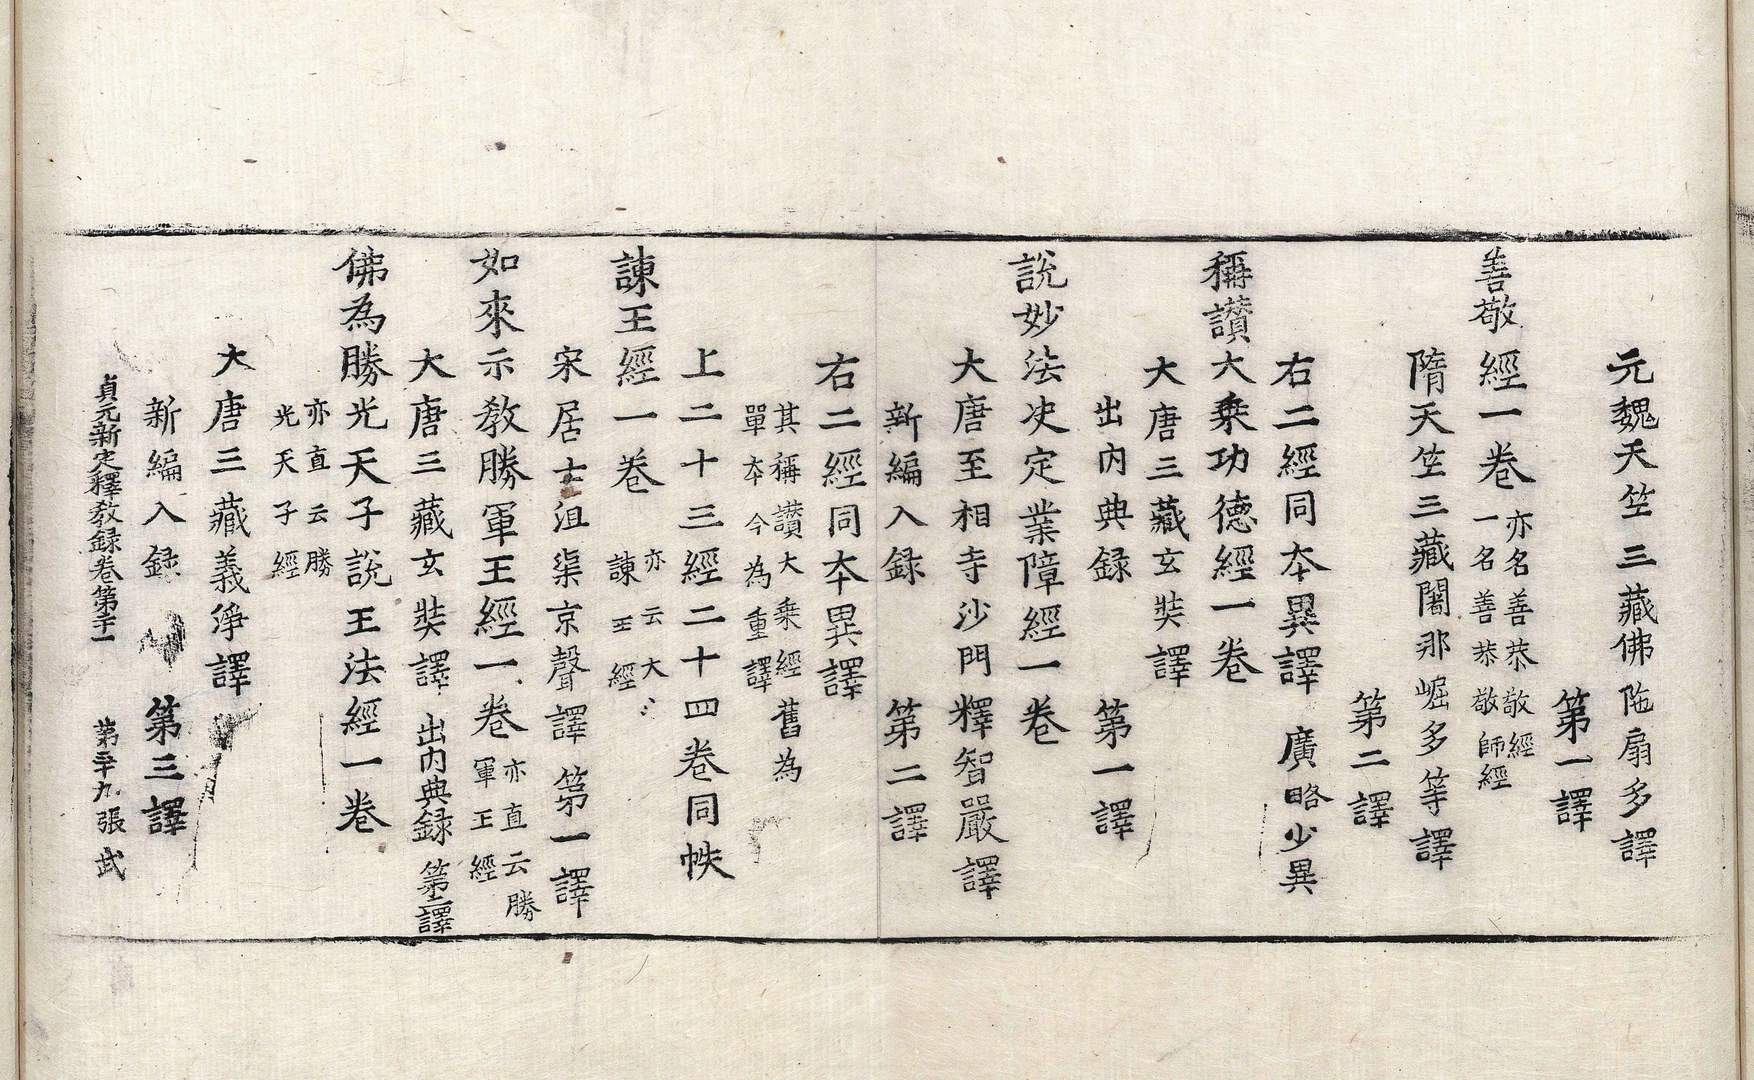 元魏天竺三藏佛陁扇多譯
第一譯
善敬經一卷亦名善恭敬經
一名善恭敬師經
隋天竺三藏闍那崛多等譯
第二譯
右二經同本異譯 廣略少異
稱讃大乗功德經一卷
大唐三藏玄奘譯
出内典録 第一譯
說妙法决定業障經一卷
大唐至相寺沙門釋智嚴譯
新編入録 第二譯
右二經同本異譯
其稱讃大乗經舊為
單本今為重譯
上二十三經二十四卷同帙
諫王經一卷亦云大〻
諫王經
宋居士沮渠京聲譯 第一譯
如來示教勝軍王經一卷亦直云勝
軍王經
大唐三藏玄奘譯出内典録第二譯
佛為勝光天子說王法經一卷
亦直云勝
光天子經
大唐三藏義淨譯
新編入録 第三譯
貞元新定釋教録卷第二十一 第二十九張 武